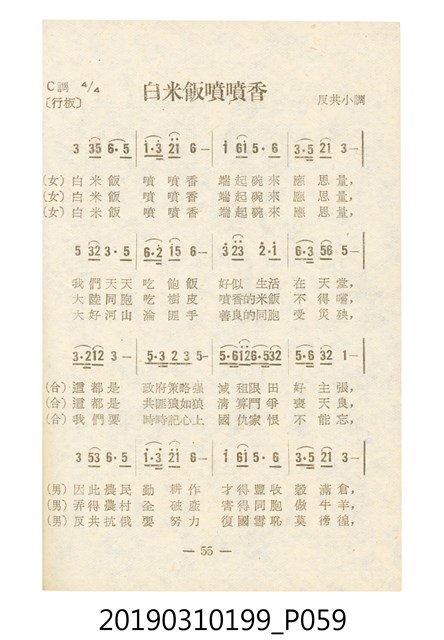 C調 4/4
白米飯噴噴香
〔行板〕
反共小調
3 35 6·5 | 1·3 21 6— | 1 61 5·6 | 3·5 21 3— |
(女) 白米飯 噴噴香 端起碗來 應思量,
(女) 白米飯 噴噴香 端起碗來 應思量,
(女) 白米飯 噴噴香 端起碗來 應思量,
5 32 3·5 | 6·2 15 6— | 3 23 2·1 | 6·3 56 5— |
我們天天 吃飽飯 好似生活 在天堂,
大陸同胞 吃樹皮 噴香的米飯 不得嚐,
大好河山 淪匪手 善良的同胞 受災殃,
3·212 3— | 5·3 2 3 5— | 5·6126·532 | 5·6 32 1— |
(合) 這都是 政府策略強 減租限田 好主張,
(合) 這都是 共匪狼如狼 清算鬥爭 喪天良,
(合) 我們要 時時記心上 國仇家恨 不能忘,
3 53 6·5 | 1·3 21 6— | 1 61 5·6 | 3·5 21 3— |
(男) 因此農民 勤耕作 才得豐收 穀滿倉,
(男) 弄得農村 全破產 害得同胞 做牛羊,
(男) 反共抗俄 要努力 復國雪恥 莫徬徨,
— 55 —
20190310199_P059